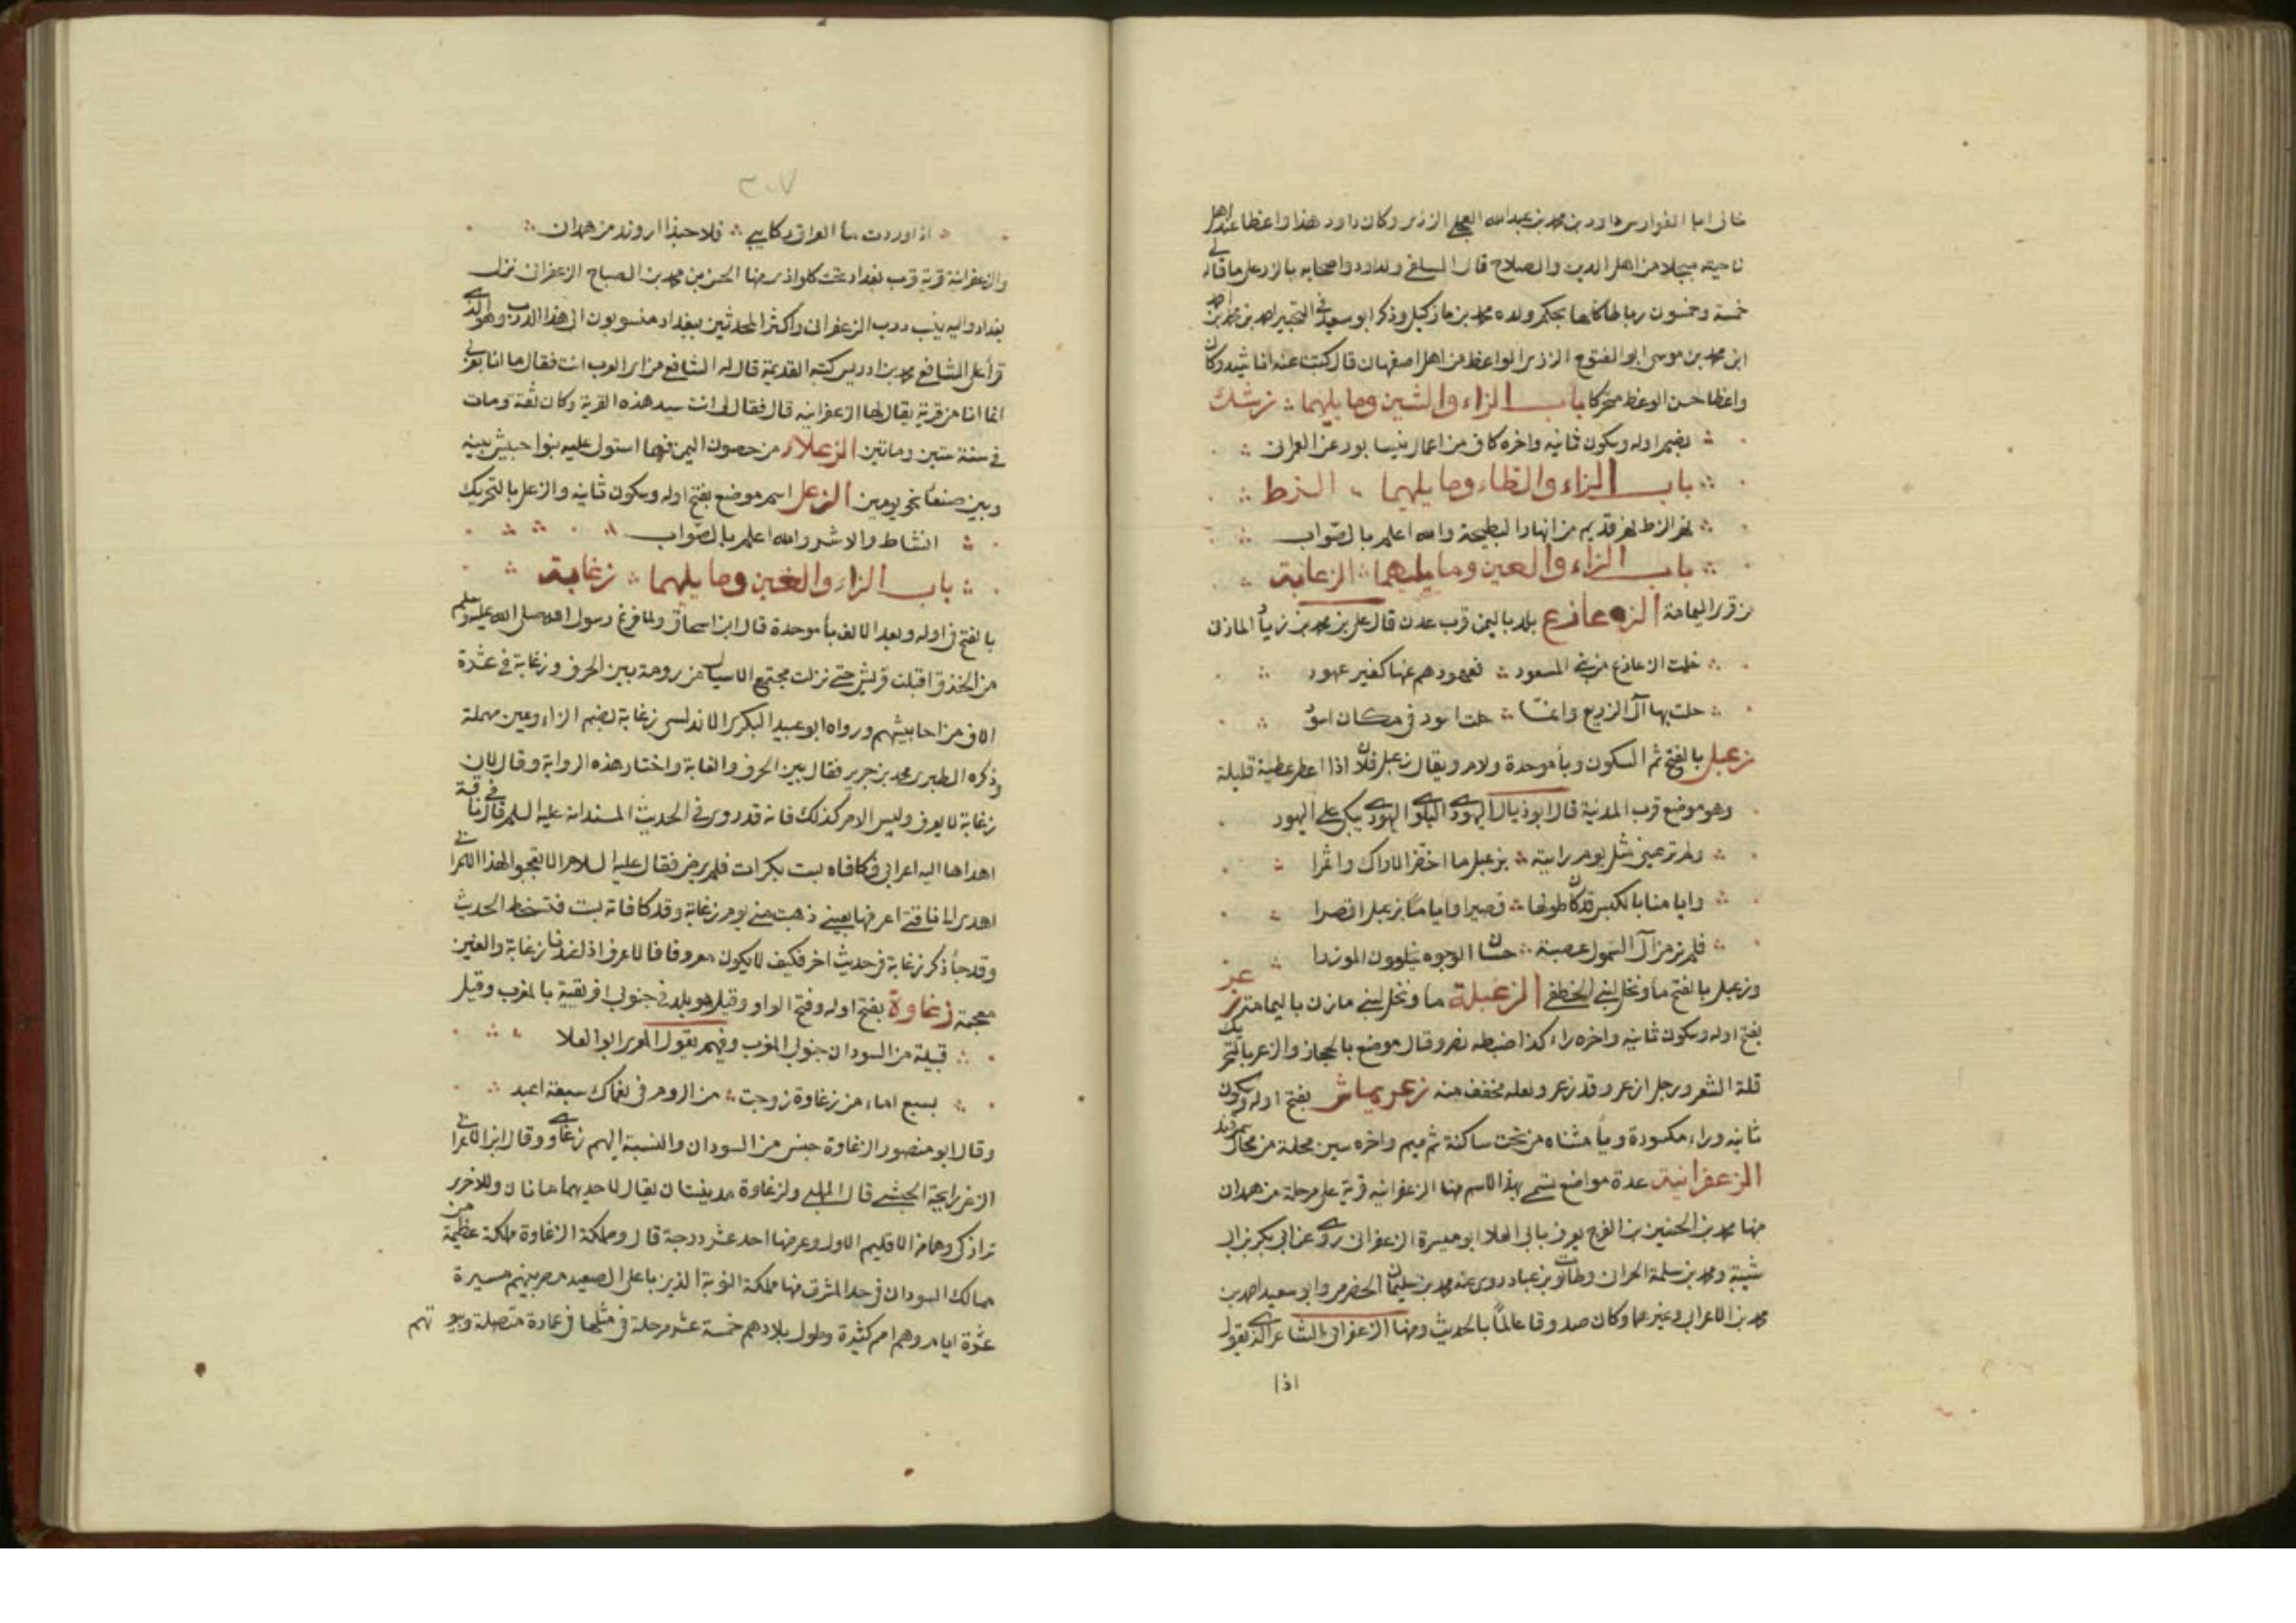 خالى ابا الفوارس داود بن محمد بن عبدالله العجلى الززى وكان داود هذا واعظا عند اهل
ناحيته مبجلا من اهل الدين والصلاح قال السلفى ولداود واصحابه بالزز على ما قاله لى
خمسة وخمسون رباطا كانها بحكم ولده محمد بن وذكر ابو سعيد فى التحبير احمد بن محمد بن احمد
ابن محمد بن موسى ابو الفتوح الززى الواعظ من اهل اصفهان قال كتبت عنه اناشيد وكان
واعظا حسن الوعظ متحركا باب الزاء والشين وما يليهما زشك
بضم اوله وسكون ثانيه واخره كاف من اعمال نيسابور عن العمرانى
باب الزاء والطاء وما يليهما الزط
نهر الزط نهر قديم من انهار البطيحة والله اعلم بالصواب
باب الزاء والعين وما يليهما الزعابة
من قرى اليمامة الزعازع بلد باليمن قرب عدن قال على بن محمد بن زياد المازنى
خلت الزعازع من بنى المسعود فعهودهم عنها كغير عهود
حلت بها آل الزريع وانما حلت اسود فى مكان اسود
زعبل بالفتح ثم السكون وبأ موحدة ولام ويقال زعبل فلان اذا اعطى عطية قليلة
وهو موضع قرب المدينة قال ابو ذيال اليهودى البلوى اليهودى يبكى على اليهود
ولم تر عينى مثل يوم رايته بزعبل ما اخضر الاراك واثمرا
وايامنا بالكبس قد كان طولها قصيرا واياما بزعبل اقصرا
فلم تر من آل السمول عصبة حسان الوجوه يخلوون
وزعبل بالفتح مأ ونخل لبنى الخطفى الزعبلة مأ ونخل لبنى مازن باليمامة زعر
بفتح اوله وسكون ثانيه واخره راء كذا ضبطه نصر وقال موضع بالحجاز والزعر بالتحريك
قلة الشعر ورجل ازعر وقد زعر ولعله مخفف منه زعريماش بفتح اوله وسكون
ثانيه وراء مكسورة ويأ مثناه من تحت ساكنة ثم ميم واخره سين محلة من محال سمرقند
الزعفرانية عدة مواضع تسمى بهذا الاسم منها الزعفرانيه قرية على مرحلة من همدان
منها محمد بن الحسين بن الفرج يعرف بابى العلا ابو ميسرة الزعفرانى روى عن ابى بكر بن ابى
شيبة ومحمد بن سلمة الحرانى وطالوت بن عباد روى عنه محمد بن سليمان الحضرمى وابو سعيد احمد بن
محمد بن الاعرابى وغيرهما وكان صدوقا عالمًا بالحديث ومنها الزعفرانى الشاعر الذى يقول
اذا
٣٠٧
اذا وردت مأ العراق ركايبى فلا حبذا اروند من همدان
والزعفرانية قرية قرب بغداد تحت كلواذى منها الحسن بن محمد بن الصباح الزعفرانى نزل
بغداد واليه ينسب درب الزعفرانى واكثر المحدثين ببغداد منسوبون الى هذا الدرب وهو الذى
قرأ على الشافعى محمد بن ادريس كتبه القديمة قال له الشافعى من اى العرب انت فقال ما انا بعربى
انما انا من قرية يقال لها الزعفرانيه قال فقال لى انت سيد هذه القرية وكان ثقة ومات
فى سنة ستين ومائتين الزعلاء من حصون اليمن فيما استولى عليه بنوا حبيش بينه
وبين صنعا نحو يومين الزعل اسم موضع بفتح اوله وسكون ثانيه والزعل بالتحريك
النشاط والاشر والله اعلم بالصواب
باب الزاء والغين وما يليهما زغابة
بالفتح فى اوله وبعد الالف بأ موحدة قال ابن اسحاق ولما فرغ رسول الله صلى الله عليه وسلم
من الخندق اقبلت قريش حتى نزلت مجتمع الاسيال من رومة بين الجرف وزغابة فى عشرة
الاف من احابيشهم ورواه ابو عبيد البكرى الاندلسى زغابة بضم الزاء وعين مهملة
وذكره الطبرى محمد بن جرير فقال بين الجرف والغابة واختار هذه الرواية وقال لان
زغابة لا يعرف وليس الامر كذلك فانه قد روى فى الحديث المسند انه عليه السلم قال فى ناقة
اهداها اليه اعرابى فكافاه بست بكرات فلم يرض فقال عليه السلام الا تعجبوا لهذا الاعرابى
اهدى الى ناقتى اعرفها بعينى ذهبت منى يوم زغابة وقد كافاته بست فتسخط الحديث
وقد جأ ذكر زغابة فى حديث اخر فكيف لا يكون معروفا فالاعرف اذا عندنا زغابة والغين
معجمة زغاوة بفتح اوله وفتح الواو وقيل هو بلد فى جنوبى افريقية بالمغرب وقيل
قبيلة من السودان جنوبى المغرب وفيهم يقول المعرى ابو العلا
بسبع اماء من زغاوة زوجت من الروم فى نعماك سبعة اعبد
وقال ابو منصور الزغاوة جنس من السودان والنسبة اليهم زغاوى وقال ابن الاعرابى
الزغى رايحة الحبشى قال المهلبى ولزغاوة مدينتان يقال لاحديهما مانان وللاخرى
ترازكى وهما من الاقليم الاول وعرضها احد عشر درجة قال ومملكة الزغاوة مملكة عظيمة من
ممالك السودان فى حد المشرق منها مملكة النوبة الذين باعلى الصعيد مصر بينهم مسيرة
عشرة ايام وهم امم كثيرة وطول بلادهم خمسة عشر مرحلة فى مثلها فى عمارة متصلة وبيوتهم